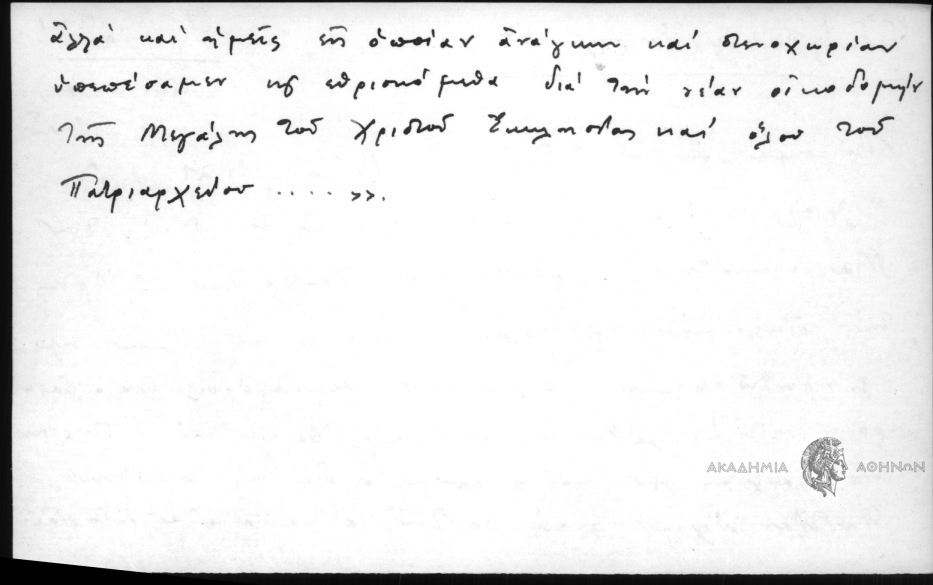 ἀλλά καί ἡμεῖς εἰς ὁποίαν ἀνάγκην καί στενοχωρίαν
ὑπεπέσαμεν κ εὑρισκόμεθα διά τήν νέαν οἰκοδομήν
τῆς Μεγάλης τοῦ Χριστοῦ Ἐκκλησίας καί ὅλου τοῦ
Πατριαρχείου .... >>.
ΑΚΑΔΗΜΙΑ ΑΘΗΝΩΝ